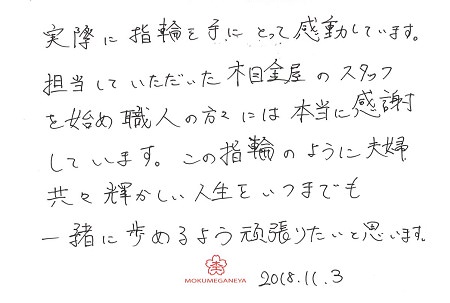 実際に指輪を手にとって感動しています。
担当していただいた杢目金屋のスタッフ
を始め職人の方々には本当に感謝
しています。この指輪のように夫婦
共々輝かしい人生をいつまでも
一緒に歩めるよう頑張りたいと思います。
MOKUMEGANEYA
2018.11.3